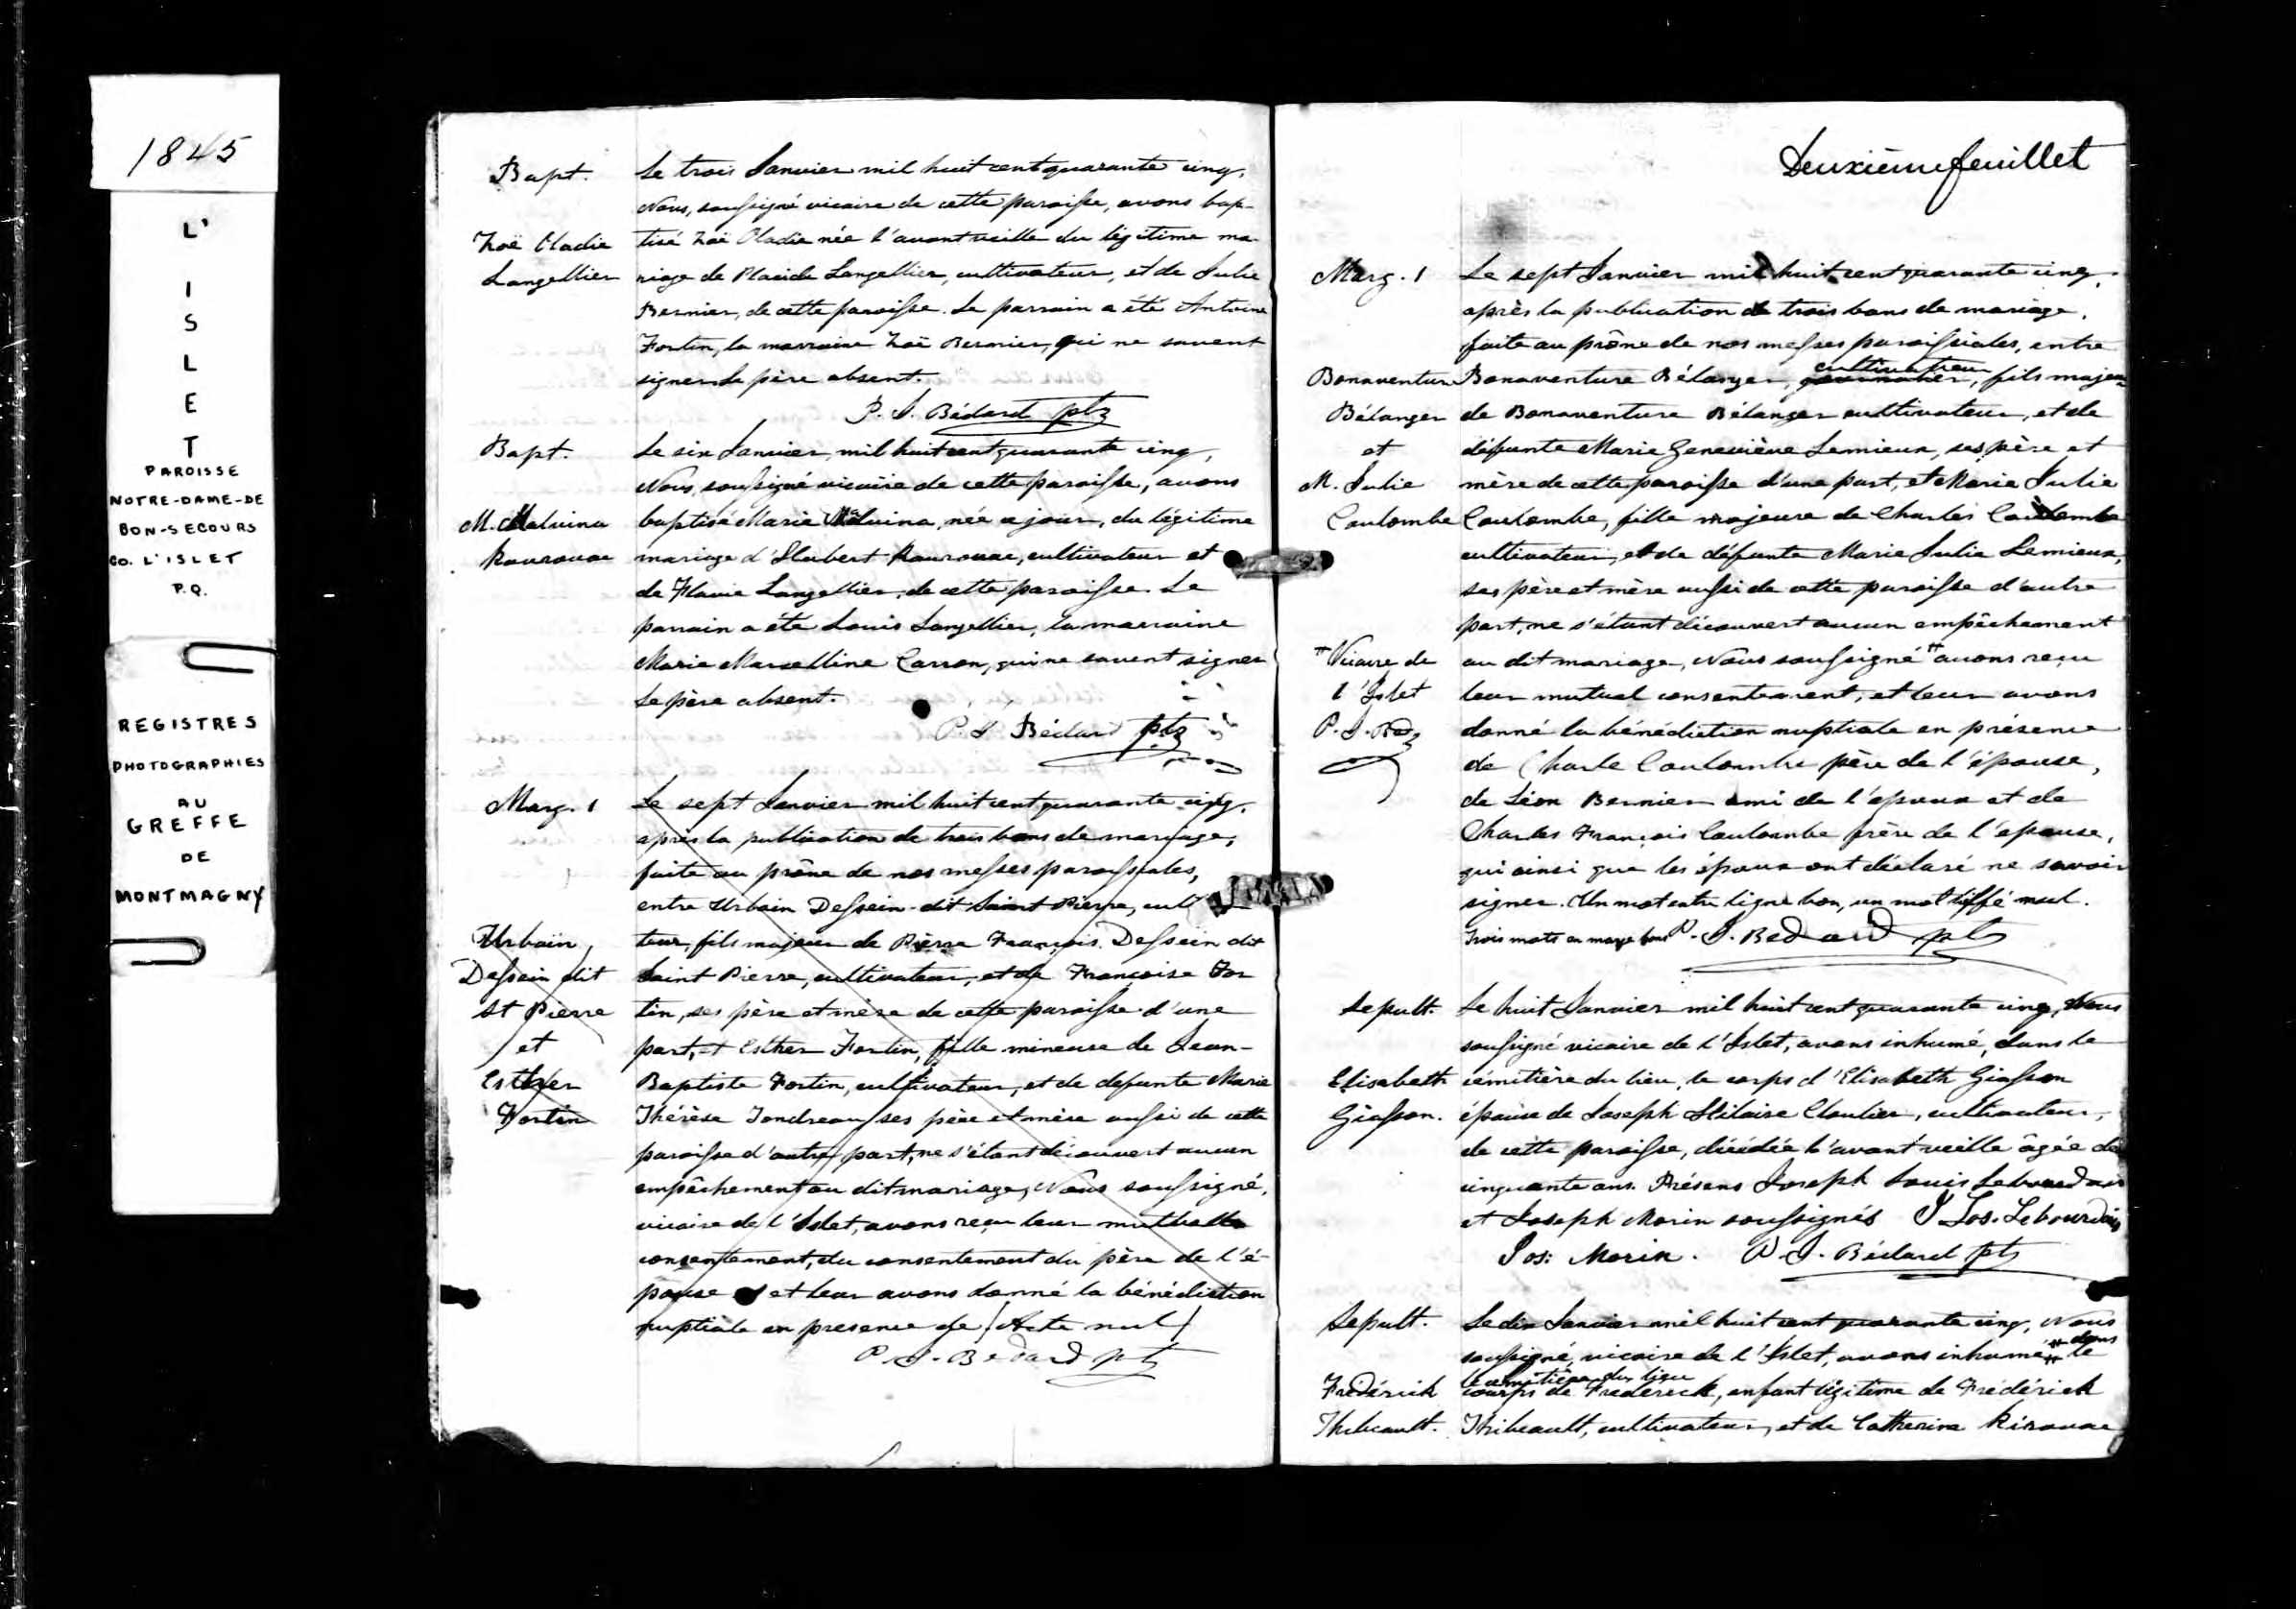 1845
L'
I
S
L
E
T
PAROISSE
NOTRE-DAME-DE
BON-SECOURS
CO. L'ISLET
P.Q.
REGISTRES
PHOTOGRAPHIES
AU
GREFFE
DE
MONTMAGNY
Bapt. Le trois Janvier mil huit cent quarante cinq,
Nous, soussigné vicaire de cette paroisse, avons bap-
Zoë Eladie tisé Zoë Eladie née l'avant veille du légitime ma-
Langellier riage de Placide Langellier, cultivateur, et de Julie
Bernier, de cette paroisse. Le parrain a été Antoine
Fortin, la marraine Zoë Bernier, qui ne savent
signer. Le père absent.
P. J. Bédard ptre
Bapt. Le six Janvier, mil huit cent quarante cinq,
Nous, soussigné vicaire de cette paroisse, avons
M. Malvina baptisé Marie Malvina, née ce jour, du légitime
Kaurouac mariage d'Hubert Kaurouac, cultivateur et
de Flavie Langellier, de cette paroisse. Le
parrain a été Louis Langellier, la marraine
Marie Marcelline Caron, qui ne savent signer
Le père absent.
P. J. Bédard ptre
Marg. 1 Le sept Janvier mil huit cent quarante cinq,
après la publication de trois bans de mariage,
faite au prône de nos messes paroissiales,
entre Urbain Dessein dit Saint Pierre, culti
Urbain teur, fils majeur de Pierre François Dessein dit
Dessein dit Saint Pierre, cultivateur, et de Françoise For
St Pierre tin, ses père et mère de cette paroisse d'une
et part, et Esther Fortin, fille mineure de Jean-
Esther Baptiste Fortin, cultivateur, et de defunte Marie
Fortin Thérèse Tondreau ses père et mère aussi de cette
paroisse d'autre part, ne s'étant découvert aucun
empêchement au dit mariage, Nous soussigné,
vicaire de l'Islet, avons reçu leur
consentement, du consentement du père de l'é-
pouse et leur avons donné la bénédiction
nuptiale en presence de (Acte nul)
P. J. Bedard ptr
Deuxième feuillet
Marg. 1 Le sept Janvier mil huit cent quarante cinq,
après la publication de trois bans de mariage,
faite au prône de nos messes paroissiales, entre
cultivateur
Bonaventure Bonaventure Bélanger, , fils majeur
Bélanger de Bonaventure Bélanger cultivateur, et de
et défunte Marie Geneviève Lemieux, ses père et
M. Julie mère de cette paroisse d'une part, et Marie Julie
Coulombe Coulombe, fille majeure de Charles Coulombe
cultivateur, et de défunte Marie Julie Lemieux,
ses père et mère aussi de cette paroisse d'autre
part, ne s'étant découvert aucun empêchement
# Vicaire de au dit mariage, Nous soussigné # avons reçu
l'Islet leur mutuel consentement, et leur avons
P. J. Bd donné la bénédiction nuptiale en présence
de Charle Coulombe père de l'épouse,
de Léon Bernier ami de l'epoux et de
Charles François Coulombe frère de l'epouse,
qui ainsi que les époux ont déclaré ne savoir
signer. Un mot entre ligne bon, un mot biffé nul.
Trois mots en marge bons P. J. Bedard ptr
Sepult. Le huit Janvier mil huit cent quarante cinq, Nous
soussigné vicaire de l'Islet, avons inhumé, dans le
Elisabeth cémitière du lieu, le corps d'Elisabeth Giasson
Giasson. épouse de Joseph Hilaire Cloutier, cultivateur,
de cette paroisse, décédée l'avant veille âgée de
cinquante ans. Présens Joseph Louis Lebourdais
et Joseph Morin soussignés J Los. Lebourdais
Jos: Morin. P. J. Bédard ptr
Sepult. Le dix Janvier mil huit cent quarante cinq, Nous
dans
soussigné, vicaire de l'Islet, avons inhumé # le
le cemitière du lieu
Frédérick corps de Frederick, enfant légitime de Frédérick
Thibeault. Thibeault, cultivateur, et de Catherine Kirouac